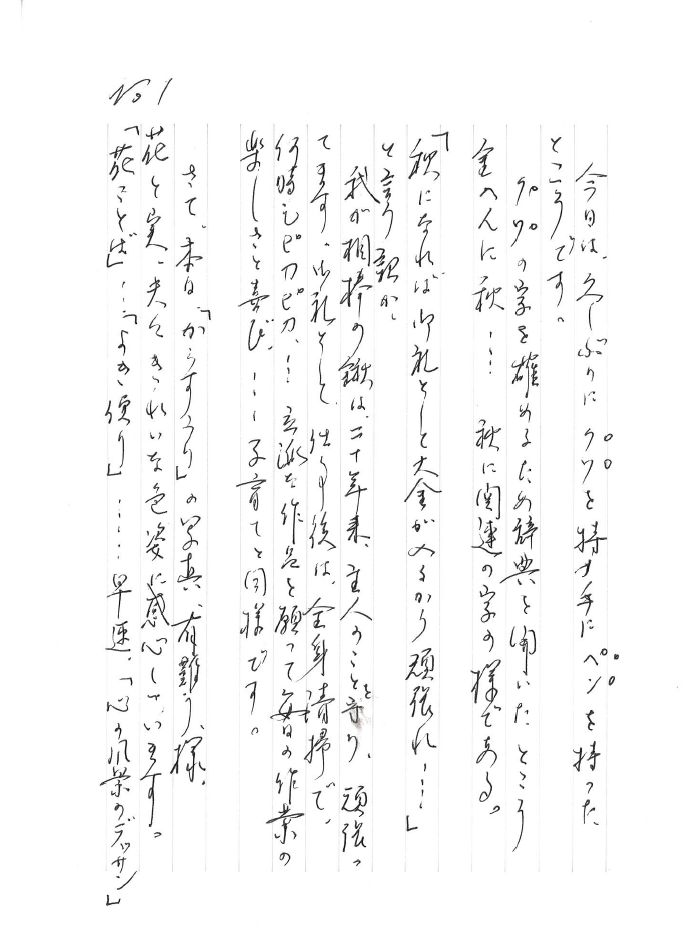 No 1
今日は、久しぶりにクワを持つ手にペンを持った
ところです。
クワの字を確めるため辞典を開いたところ
金へんに秋… 秋に関連の字の様である。
「秋になれば御礼として大金が入るから頑張れ…」
と言う訳か。
我が相棒の鍬は、二十年来、主人のことを守り、頑張っ
てます。御礼として、仕事後は、全身清掃で、
何時もピカピカ、…立派な作品を願って毎日の作業の
楽しさと喜び、…子育てと同様です。
さて、本日「からすうり」の写真、有難う、様、
花と実、夫々きれいな色姿に感心しています。
「花ことば」…「よき便り」……早速、「心の風景のデッサン」